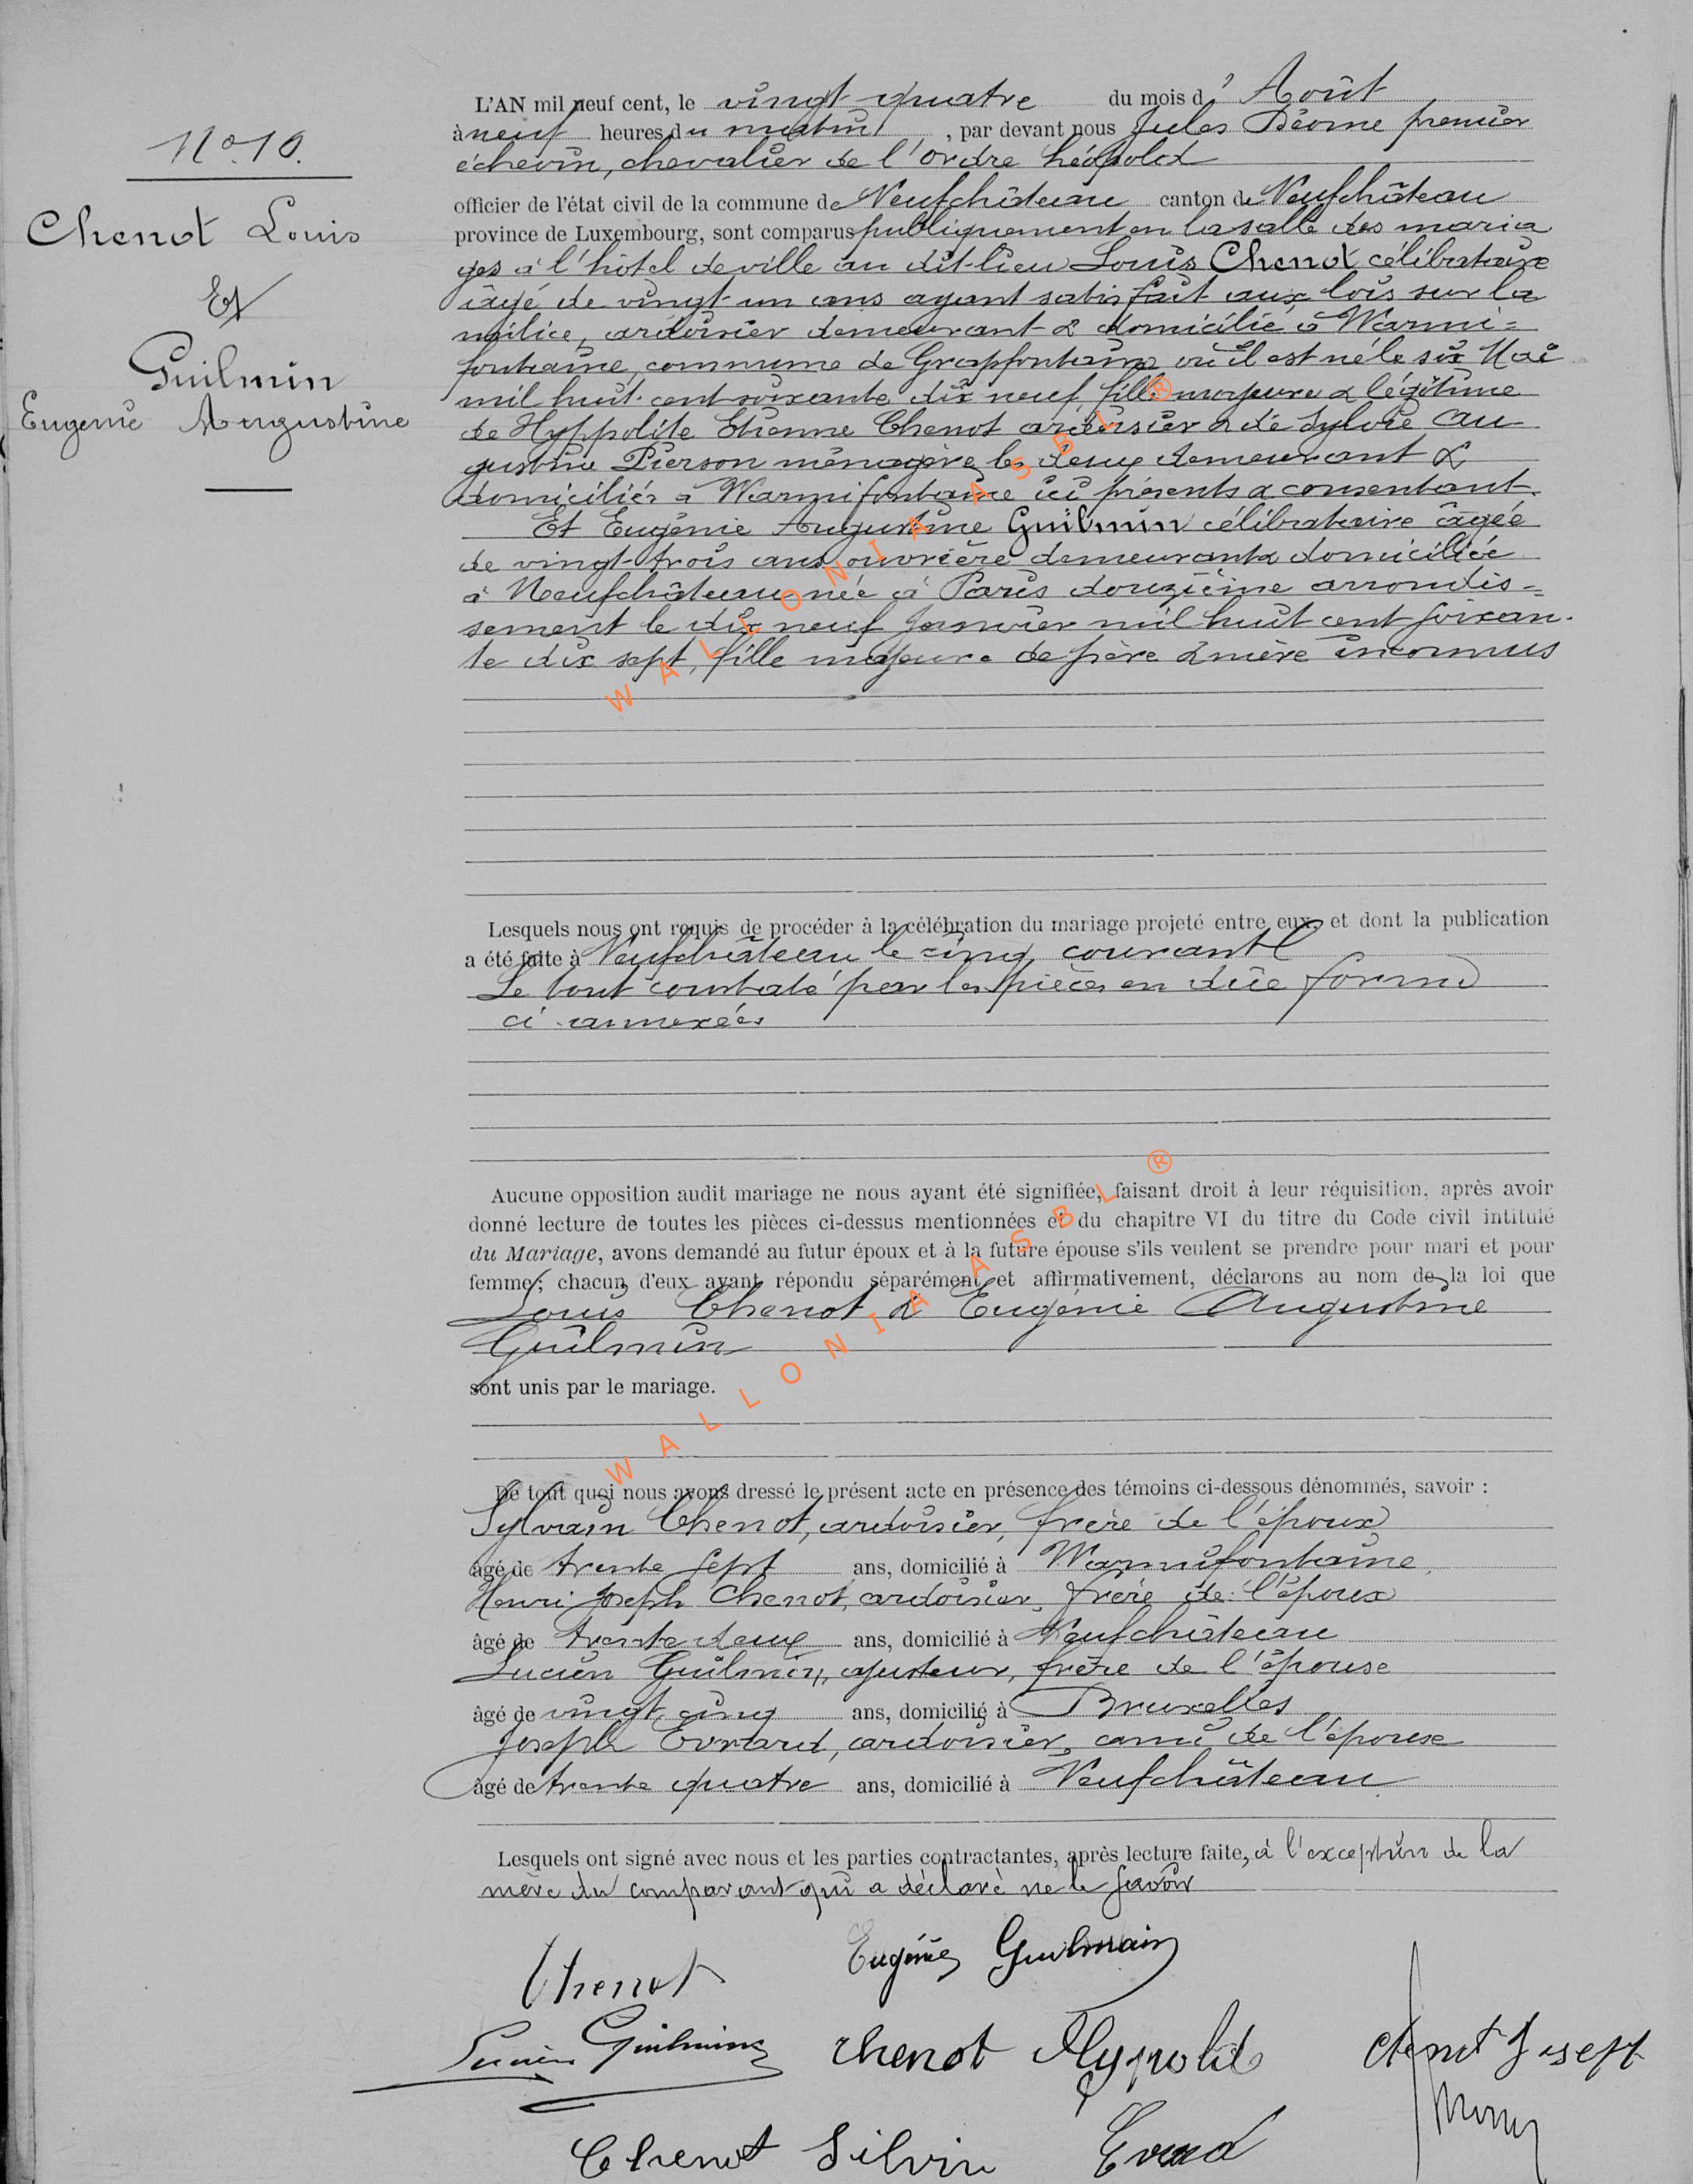 No. 10.
Chenot Louis
Et
Guilmin
Eugenie Augustine
L'AN mil neuf cent, le vingt quatre du mois d' Août
à neuf heures du matin, par devant nous Jules premier
échevin, chevalier de l'Ordre Léopold
officier de l'état civil de la commune de Neufchâteau canton de Neufchâteau
province de Luxembourg, sont comparus publiquement en la salle des maria
ges à l'hôtel de ville au dit-lieu Louis Chenot célibataire
âgé de vingt-un ans ayant satisfait aux lois sur la
milice, ardoisier demeurant & domicilié à Warmi=
fontaine, commune de Grapfontaine où il est né le six Mai
mil huit-cent soixante dix neuf, fils majeure & légitime
de Hyppolite Etienne Chenot ardoisier & de Sylvie Au
gustine Pierson ménagère les deux demeurant &
domiciliés à Warmifontaine ici présents & consentant.
Et Eugénie Augustine Guilmin célibataire âgée
de vingt-trois ans ouvrière demeurant & domiciliée
à Neufchâteau née à Paris douzième arrondis=
sement le dix neuf Janvier mil huit cent soixan-
te dix sept, fille majeure de père & mère inconnus
Lesquels nous ont requis de procéder à la célébration du mariage projeté entre eux, et dont la publication
a été faite à Neufchâteau le cinq courant
Le tout constaté par les pièces en dûe forme
ci-annexées
Aucune opposition audit mariage ne nous ayant été signifiée, faisant droit à leur réquisition, après avoir
donné lecture de toutes les pièces ci-dessus mentionnées et du chapitre VI du titre du Code civil intitulé
du Mariage, avons demandé au futur époux et à la future épouse s'ils veulent se prendre pour mari et pour
femme; chacun d'eux ayant répondu séparément et affirmativement, déclarons au nom de la loi que
Louis Chenot & Eugénie Augustine
Guilmin
sont unis par le mariage.
De tout quoi nous avons dressé le présent acte en présence des témoins ci-dessous dénommés, savoir :
Sylvain Chenot, ardoisier, frère de l'époux
âgé de trente sept ans, domicilié à Warmifontaine,
Henri Joseph Chenot, ardoisier, frère de l'époux
âgé de trente deux ans, domicilié à Neufchâteau
Lucien Guilmin, ajusteur, frère de l'épouse
âgé de vingt cinq ans, domicilié à Bruxelles
Joseph Evrard, ardoisier, ami de l'épouse
âgé de trente quatre ans, domicilié à Neufchâteau
Lesquels ont signé avec nous et les parties contractantes, après lecture faite, à l'exception de la
mère du comparant qui a déclaré ne le savoir
Chenot Eugénie Guilmain
Lucien Guilmin Chenot Hypolite Chenot Joseph
Chenot Silvin Evrard
WALLONIA ASBL ®
WALLONIA ASBL ®